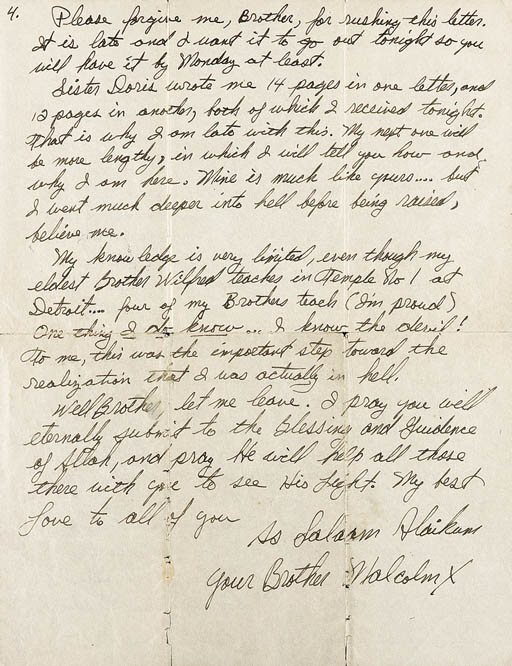 4.
Please forgive me, Brother, for rushing this letter.
It is late and I want it to go out tonight so you
will have it by Monday at least.
Sister Doris wrote me 14 pages in one letter, and
12 pages in another, both of which I received tonight.
That is why I am late with this. My next one will
be more lengthy, in which I will tell you how and
why I am here. Mine is much like yours.... but
I went much deeper into hell before being raised,
believe me.
My knowledge is very limited, even though my
eldest Brother Wilfred teaches in Temple No 1 at
Detroit.... four of my Brothers teach (I'm proud)
One thing I do know... I know the devil!
To me, this was the important step toward the
realization that I was actually in hell.
Well Brother let me leave. I pray you will
eternally submit to the Blessing and Guidence
of Allah, and pray He will help all those
there with you to see His Light. My best
Love to all of you
As Salaam Alaikum
Your Brother Malcolm X